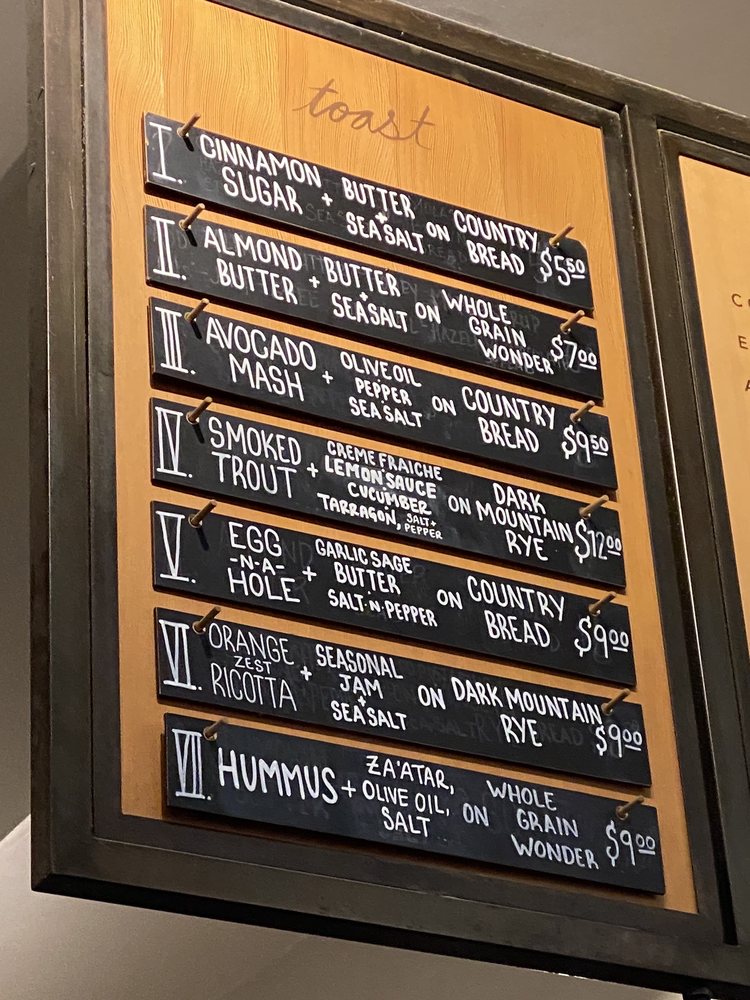 toast
I. CINNAMON SUGAR + BUTTER + SEA SALT ON COUNTRY BREAD $5.50
II. ALMOND BUTTER + BUTTER + SEA SALT ON WHOLE GRAIN WONDER $7.00
III. AVOCADO MASH + OLIVE OIL PEPPER SEA SALT ON COUNTRY BREAD $9.50
IV. SMOKED TROUT + CREME FRAICHE LEMON SAUCE CUCUMBER TARRAGON, SALT + PEPPER ON DARK MOUNTAIN RYE $12.00
V. EGG -N-A- HOLE + GARLIC SAGE BUTTER SALT·N·PEPPER ON COUNTRY BREAD $9.00
VI. ORANGE ZEST RICOTTA + SEASONAL JAM + SEA SALT ON DARK MOUNTAIN RYE $9.00
VII. HUMMUS + ZA'ATAR, OLIVE OIL, SALT ON WHOLE GRAIN WONDER $9.00